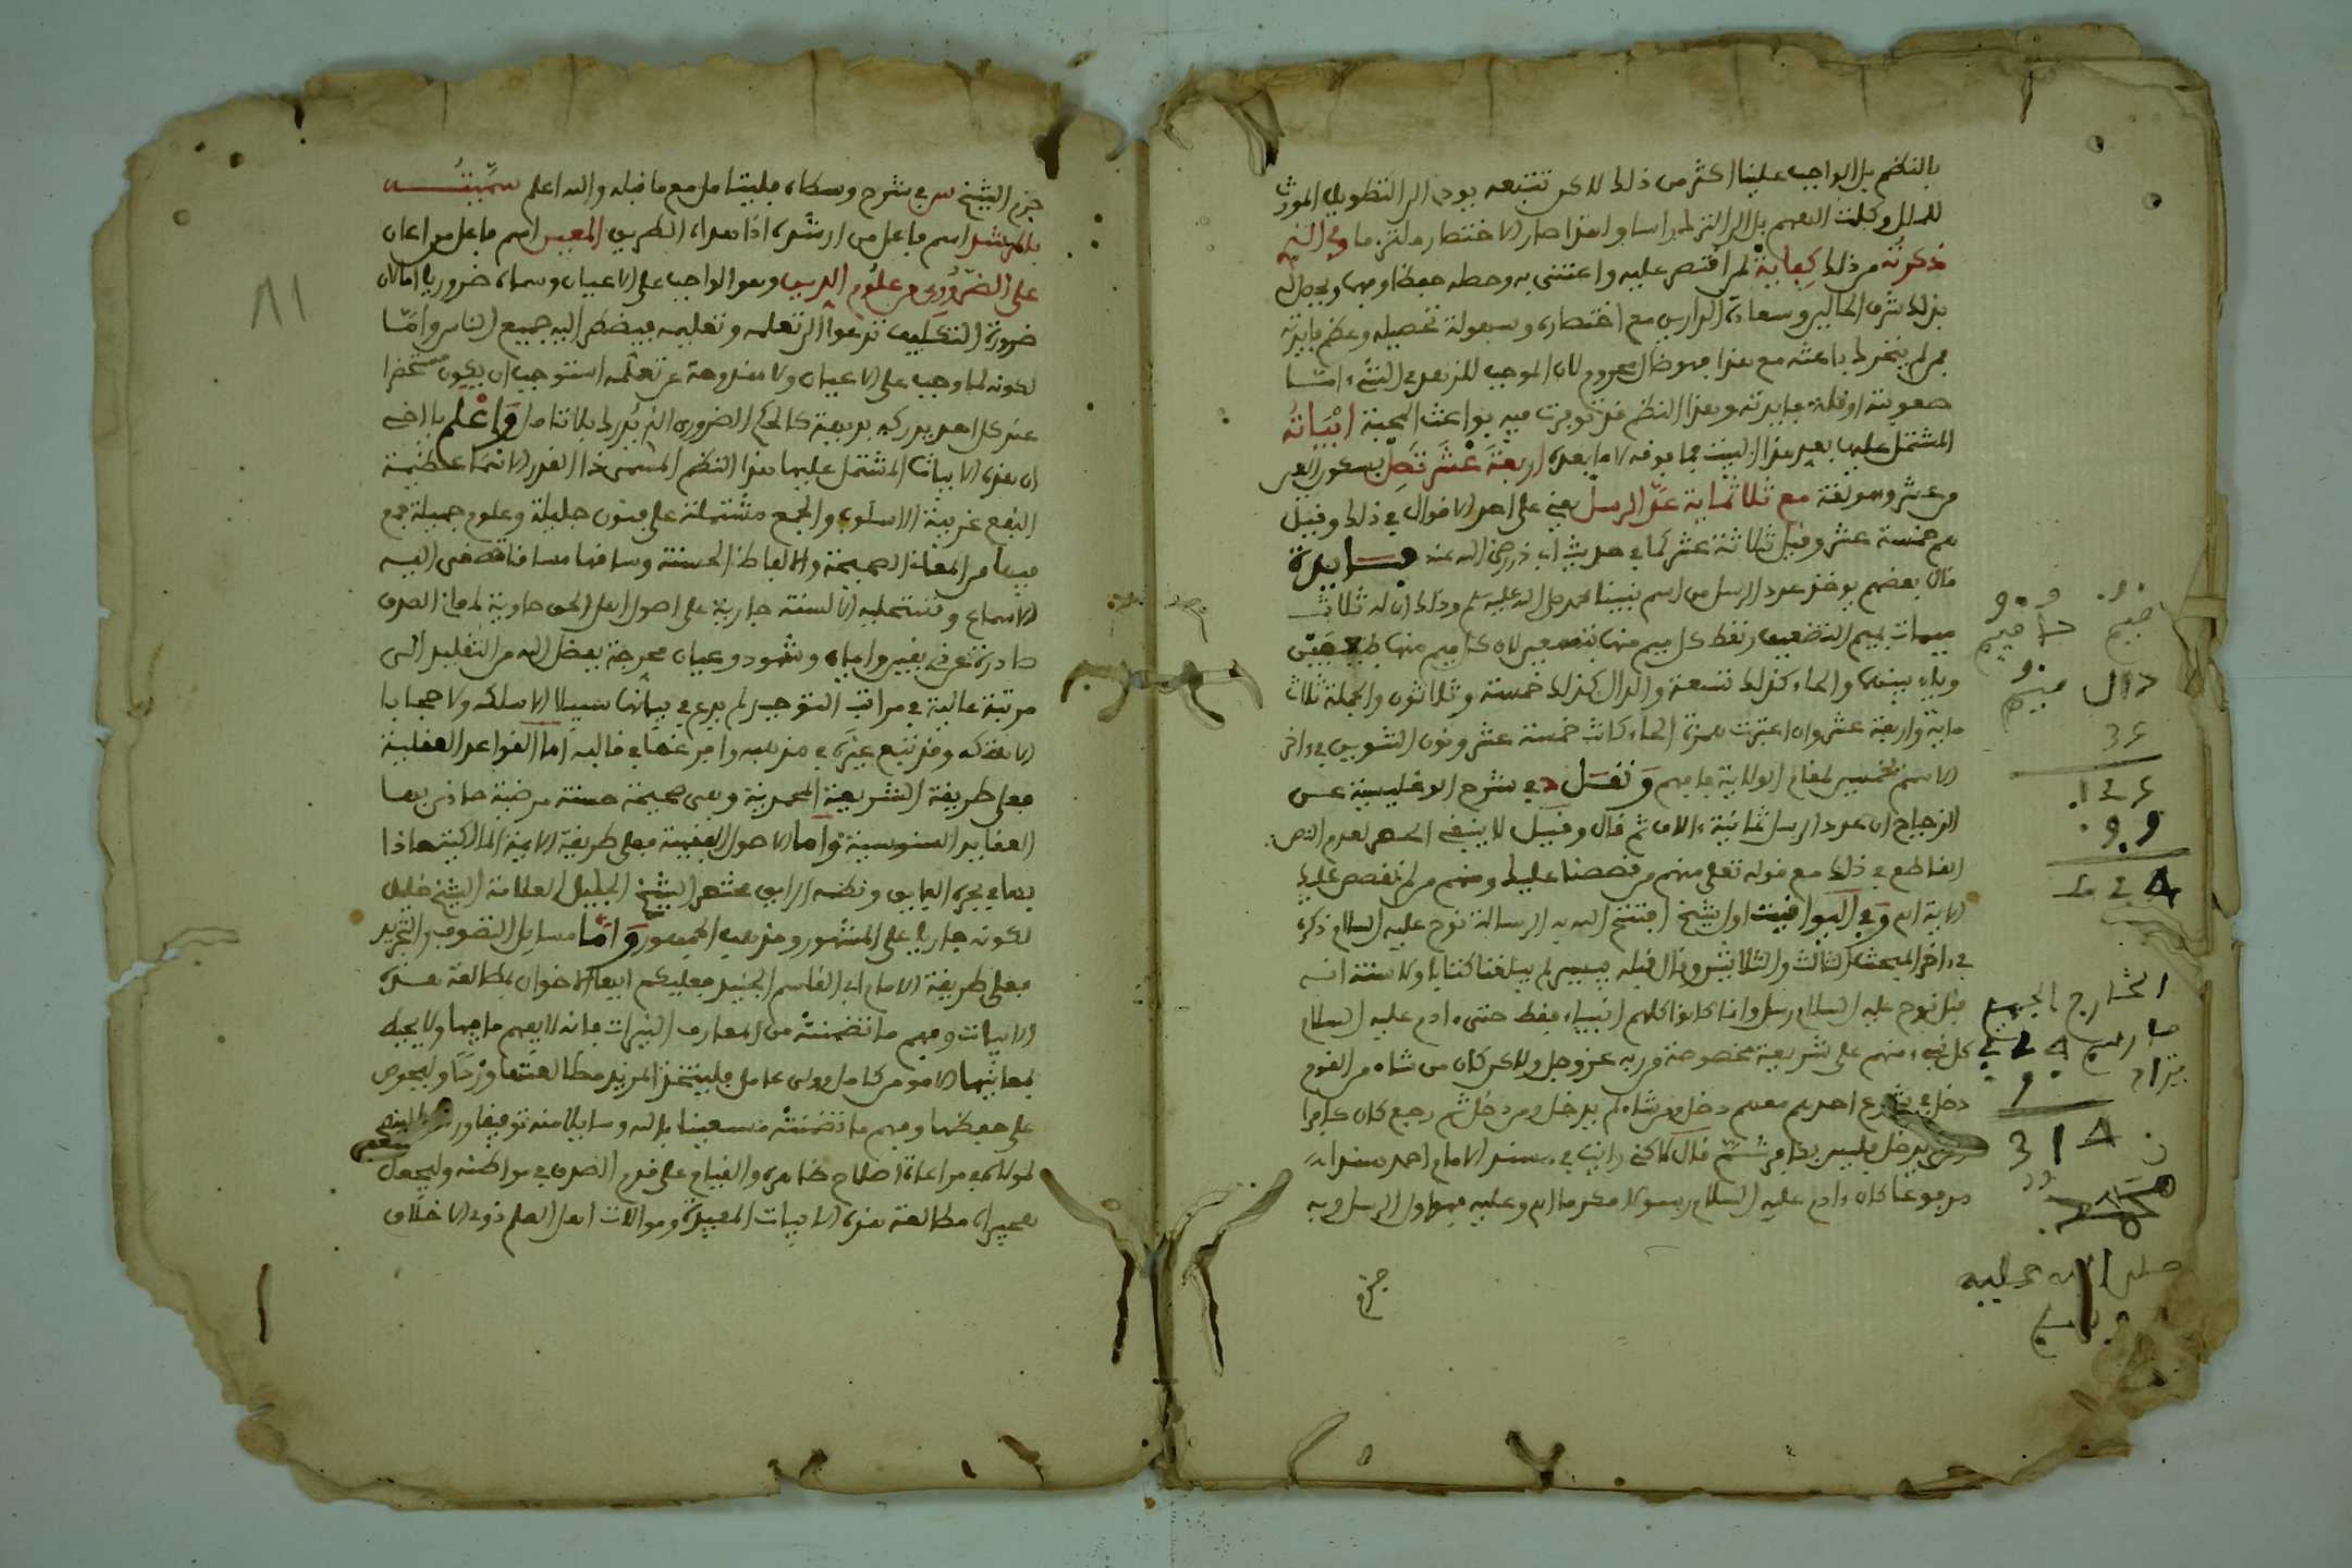 بالنظم بل الواجب علينا اكثر من ذلك لاكن تتبعه يودي الى التطويل المورث
للملل وكلت الفهم بل الى الترك راسا ولهذا صار الاختصار ملتزما وفي الذي
ذكرته من ذلك كفاية لمن اقتصر عليه واعتنى به وحصله حفظا وفهما ويحصل له
بذلك شرف الحالين وسعادة الدارين مع اختصاره وسهولة تحصيله وعظم فايدته
فمن لم ينخرط باعثه مع هذا فهو ضال محروم لان الموجب للزهد في الشيء اما
صعوبته او قلة فايدته وهذا النظم قد توفرت فيه بواعث المحبة ابياته
المشتمل عليها بعد هذا البيت فما فوقه لا ما بعده اربعة عشر تصل بسكون العين
من عشر وهو لغة مع ثلاثماية عد الرسل يعني على احد الاقوال في ذلك وقيل
مع خمسة عشر وقيل ثلاثة عشر كما في حديث ابي ذر رضي الله عنه فايدة
قال بعضهم يوخذ عدد الرسل من اسم نبينا محمد صلى الله عليه وسلم وذلك ان له ثلاث
ميمات بميم التضعيف ولفظ كل ميم منها بتسعين لان كل ميم منها
وياء بينهما والحاء كذلك تسعة والدال كذلك خمسة وثلاثون والجملة ثلاث
ماية واربعة عشر وان اعتبرت همزة الحاء كانت خمسة عشر ونون التنوين في ءاخر
الاسم لمقام الولاية فافهم ونقل في شرح الوغليسية عن
الزجاج ان عدد الرسل ثمانية ءالاف ثم قال وقيل لا ينبغي الحصر لعدم النص
القاطع في ذلك مع قوله تعلى منهم من قصصنا عليك ومنهم من لم نقصص عليك
الاية اه وفي اليواقيت اول شيخ افتتح الله به الرسالة نوح عليه السلام ذكره
في ءاخر المبحث الثالث والثلاثين وقال قبله بيسير لم يبلغنا كتابا ولا سنة انه
قبل نوح عليه السلام رسل وانما كانوا كلهم انبياء فقط حتى ءادم عليه السلام
كل نبيء منهم على شريعة مخصوصة من ربه عز وجل ولاكن كان من شاء من القوم
دخل في شرع احدهم معهم دخل ومن شاء لم يدخل ومن دخل ثم رجع كان كافرا
ومن لم يدخل فليس بكافر ثم قال لاكني رايت في مسند الامام احمد سندا
مرفوعا كان ءادم عليه السلام رسولا مكرما اه وعليه فهو اول الرسل وبه
جزم
ميم حا ميم
دال ميم
35
الخارج بالجميع
314
صلى الله عليه
وسلم
81
جزم الشيخ س في شرح وسطاه فليتامل مع ما قبله والله اعلم سميته
بالمرشد اسم فاعل من ارشده اذا هداه الطريق المعين اسم فاعل من اعان
على الضروري من علوم الدين وهو الواجب على الاعيان وسماه ضروريا اما لان
ضرورة التكليف تدعوا الى تعلمه وتعليمه فيضطر اليه جميع الناس واما
لكونه لما وجب على الاعيان ولا مندوحة عن تعلمه استوجب ان يكون مستحضرا
عند كل احد يدركه بديهة كالحكم الضروري الذي يدرك بلا تامل واعلم يا اخي
ان هذه الابيات المشتمل عليها هذا النظم المسمى هذا القدر الاتم عظيمة
النفع غريبة الاسلوب والجمع مشتملة على فنون جليلة وعلوم جميلة جمع
فيها من المعاني الصحيحة والالفاظ الحسنة وساقها مساقا تصغى اليه
الاسماع وتستحليه الالسنة جارية على اصول اهل الحق حاوية لمعاني الصدق
صادرة عن يقين وايمان وشهود وعيان مخرجة بفضل الله من التقليد الى
مرتبة عالية في مراتب التوحيد لم يدع في بيانها سبيلا الا سلكه ولا حجابا
الا هتكه وقد تتبع غيره في مذهبه وافرغها في قالبه اما القواعد العقلية
فعلى طريقة الشريعة المحمدية وهي صحيحة حسنة مرضية حاذى بها
العقايد السنوسية واما الاصول الفقهية فعلى طريقة الايمة المالكية حاذا
بها في نحره الفايق ونظمه الرايق مختصر الشيخ الجليل العلامة الشيخ خليل
لكونه جاريا على المشهور ومذهب الجمهور واما مسايل التصوف والتجريد
فعلى طريقة الامام ابي القاسم الجنيد فعليكم ايها الاخوان بمطالعة هذه
الابيات وفهم ما تضمنته من المعارف النيرات فانه لا يفهم ما فيها ولا يحيط
بمعانيها الا مومن كامل وولي عامل فليتخذ المريد مطالعتها وردا وليحرص
على حفظها وفهم ما تضمنته مستعينا بالله وسايلا منه توفيقا
لمولاه في مراعاة اصلاح ظاهره والقيام على قدم الصدق في مواطنه وليجعل
هجيراه مطالعة هذه الابيات المفيدة وموالات اهل العلم ذوي الاخلاق